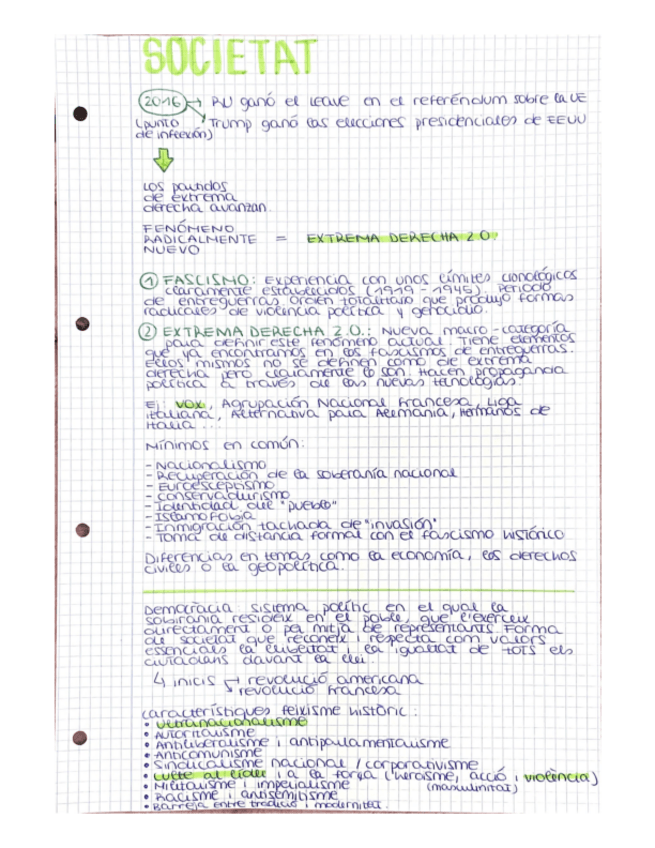 SOCIETAT
2016 → RU ganó el leave en el referéndum sobre la UE
(punto de inflexión) Trump ganó las elecciones presidenciales de EEUU
Los partidos
de extrema
derecha avanzan.
FENÓMENO
RADICALMENTE = EXTREMA DERECHA 2.0.
NUEVO
① FASCISMO: Experiencia con unos límites cronológicos
claramente establecidos (1919 - 1945). Periodo
de entreguerras. Orden totalitario que produjo formas
radicales de violencia política y genocidio.
② EXTREMA DERECHA 2.0.: Nueva macro-categoría
para definir este fenómeno actual. Tiene elementos
que ya encontramos en los fascismos de entreguerras.
Ellos mismos no se definen como de extrema
derecha pero claramente lo son. Hacen propaganda
política a través de las nuevas tecnologías.
Ej: VOX, Agrupación Nacional Francesa, Liga
italiana, Alternativa para Alemania, Hermanos de
Italia ...
Mínimos en común:
- Nacionalismo
- Recuperación de la soberanía nacional
- Euroescepticismo
- Conservadurismo
- Identidad del "pueblo"
- Islamofobia
- Inmigración tachada de "invasión"
- Toma de distancia formal con el fascismo histórico
Diferencias en temas como la economía, los derechos
civiles o la geopolítica.
Democràcia sistema polític en el qual la
sobirania resideix en el poble, que l'exerceix
directament o per mitjà de representants. Forma
de societat que reconeix i respecta com valors
essencials la llibertat i la igualtat de tots els
ciutadans davant la llei.
↳ inicis → revolució americana
revolució francesa
Característiques feixisme històric:
• Ultranacionalisme
• Autoritarisme
• Antiliberalisme i antiparlamentarisme
• Anticomunisme
• Sindicalisme nacional / corporativisme
• Culte al líder i a la força (heroisme, acció i violència)
• Militarisme i imperialisme (masculinitat)
• Racisme i antisemitisme
• Barreja entre tradició i modernitat.